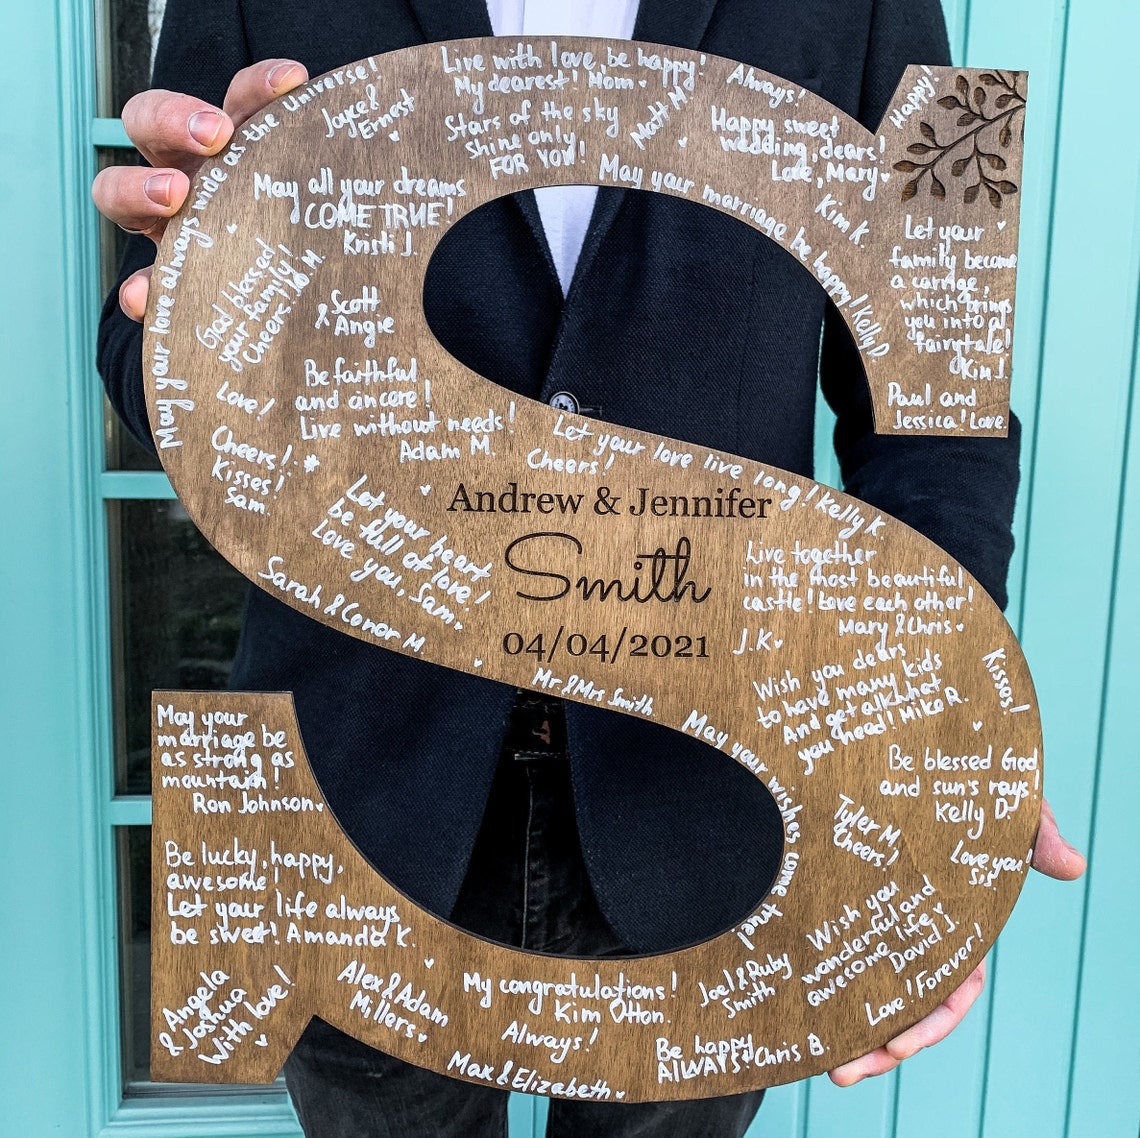 May your love always wide as the universe!
Joyce &
Ernest
Live with love, be happy!
My dearest! Mom
Stars of the sky
shine only
FOR YOU!
Matt M.
Always!
Happy sweet
wedding, dears!
Love, Mary
Happy!
May all your dreams
COME TRUE!
Kristi J.
May your marriage be happy! Kelly D.
Kim K.
Let your
family become
a carrige,
which brings
you into a
fairytale!
Kim J.
Paul and
Jessica! Love.
God blessed
your family!
Cheers! Jo M.
Scott
& Angie
Be faithful
and sincere!
Live without needs!
Adam M.
Love!
Cheers!
Kisses!
Sam.
Let your love live long! Kelly K.
Cheers!
Let your heart
be full of love!
Love you, Sam.
Sarah & Conor M.
Andrew & Jennifer
Smith
04/04/2021
Live together
in the most beautiful
castle! Love each other!
Mary & Chris
J.K
Mr & Mrs Smith
Wish you dears
to have many kids
And get all what
you need! Mike R.
Kisses!
May your wishes come true!
Be blessed God
and sun's rays!
Kelly D.
Tyler M.
Cheers!
Love you!
Sis.
May your
marriage be
as strong as
mountain!
Ron Johnson
Be lucky, happy,
awesome!
Let your life always
be sweet! Amanda K.
Angela
& Joshua
With love!
Alex & Adam
Millers
My congratulations!
Kim Otton.
Always!
Max & Elizabeth
Joel & Ruby
Smith
Wish you
wonderful and
awesome life
David J.
Love! Forever!
Be happy
ALWAYS! Chris B.